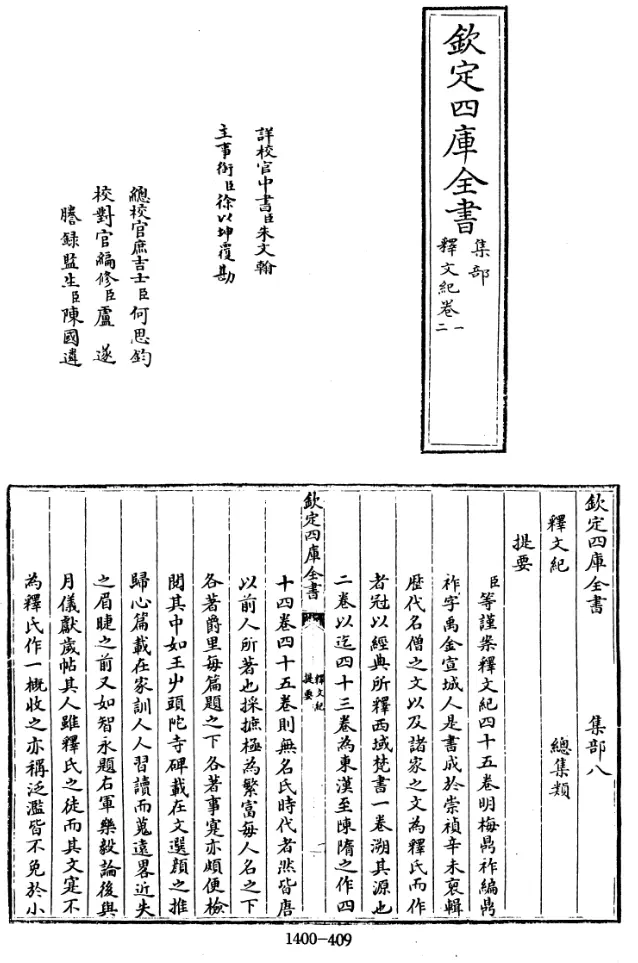 欽定四庫全書
集部
釋文紀卷一
二
詳校官中書臣朱文翰
主事銜臣徐以坤覆勘
總校官庶吉士臣何思鈞
校對官編修臣盧遂
謄錄監生臣陳國遴
欽定四庫全書 集部八
釋文紀 總集類
提要
臣等謹案釋文紀四十五卷明梅鼎祚編鼎
祚字禹金宣城人是書成於崇禎辛未裒輯
歴代名僧之文以及諸家之文為釋氏而作
者冠以經典所釋西域梵書一卷溯其源也
二卷以迄四十三卷為東漢至陳隋之作四
欽定四庫全書
釋文紀
提要
一
十四卷四十五卷則無名氏時代者然皆唐
以前人所著也採摭極為繁富每人名之下
各著爵里每篇題之下各著事寔亦頗便檢
閱其中如王屮頭陀寺碑載在文選顔之推
歸心篇載在家訓人人習讀而蒐遠畧近失
之眉睫之前又如智永題右軍樂毅論後與
月儀獻歲帖其人雖釋氏之徒而其文寔不
為釋氏作一概收之亦稱泛濫皆不免於小
1400-409